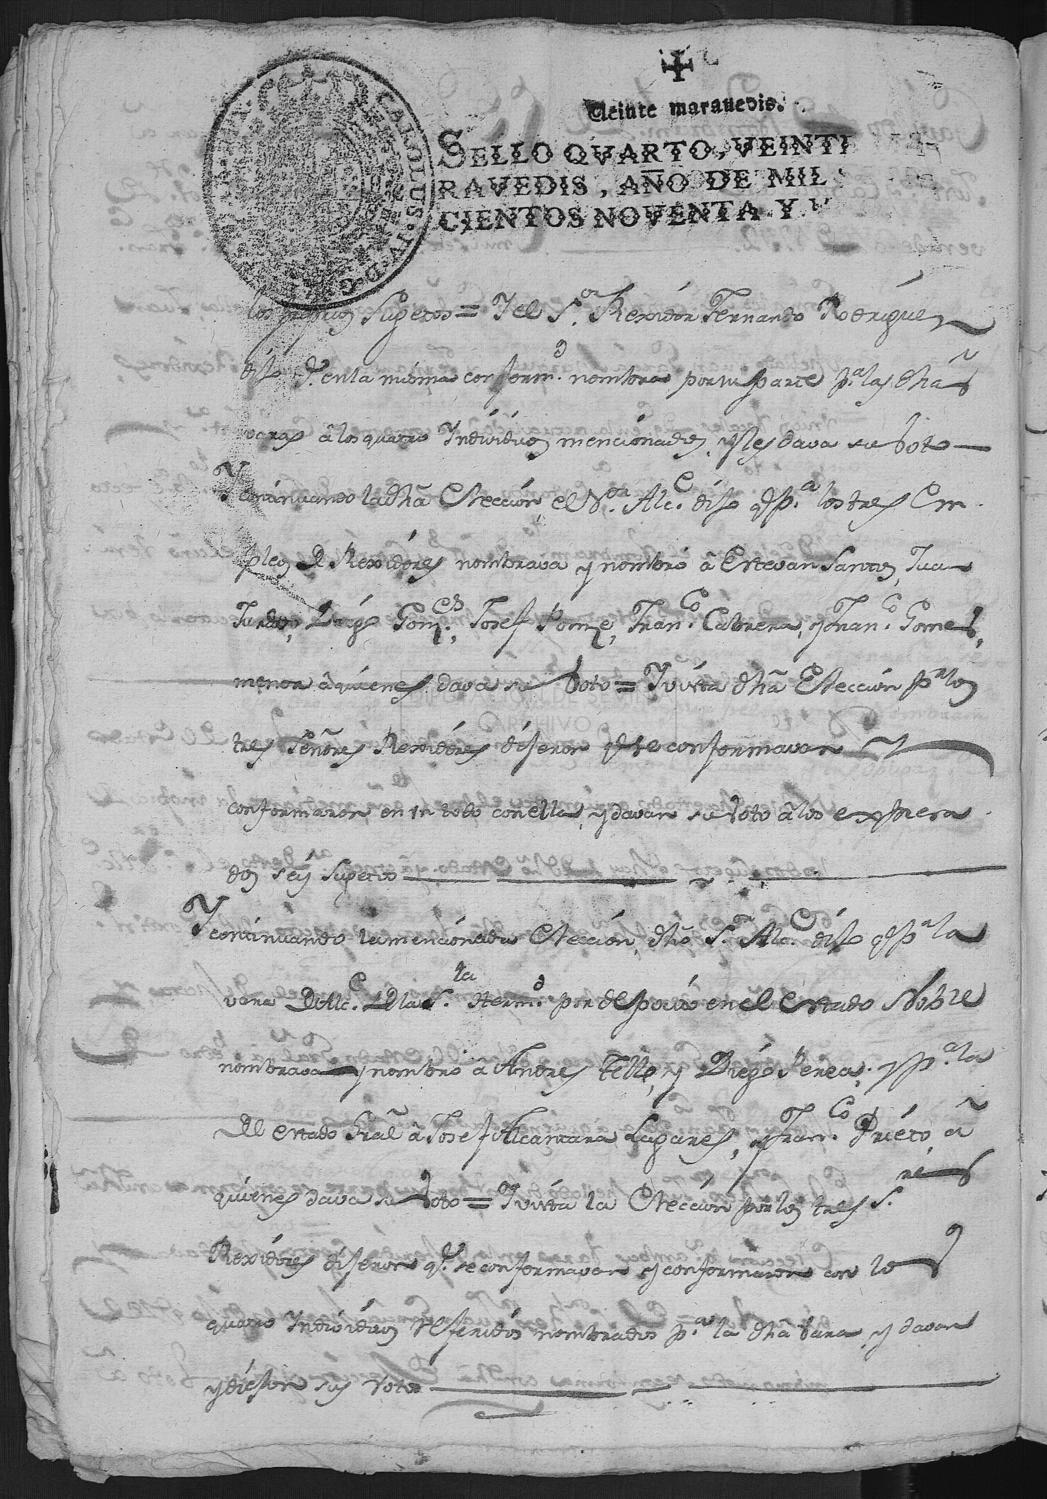 Veinte maravedis.
SELLO QVARTO, VEINTE MA-
RAVEDIS, AÑO DE MIL
CIENTOS NOVENTA Y
CAROLUS IV D G
los propios Sugetos = Y el S.or Rexidor Fernando Rodriguez
dijo q.e en la misma conform.d nombra por su parte p.a las dhãs
varas â los quatro Yndividuos mencionados, y les dava su voto
Y continuando la dhã Elección, el S.or Alc.e dijo q.e p.a los tres Em
pleos de Rexidores nombrava y nombró â Estevan Santos, Juan
Jurdo, Gom.es, Josef Ponze, Fran.co Cabrera, y Fran.co Gomes,
menor â quienes dava su Voto = Y vista dhã Elección p.r los
tres Señores Rexidores dijeron q.e se conformavan y
conformaron en un todo con ella, y davan su voto â los expresa
dos seis sugetos
Y continuando la mencionada Elección, dhõ S.or Alc.e dijo q.e p.a la
vara de Alc.e de la S.ta Herm.d por depósito en el estado Noble
nombrava y nombró â Andres Tello, y Diego Perea, y p.a la
del estado Gral â Josef Alcantara Lagares, y Fran.co Priéto, â
quienes dava su Voto = Y vista la Elección por los tres S.res
Rexidores dijeron q.e se conformavan y conformaron con los
quatro Yndividuos referidos nombrados p.a la dhã vara, y davan
y dieron sus votos
DIPUTACION DE SEVILLA
ARCHIVO